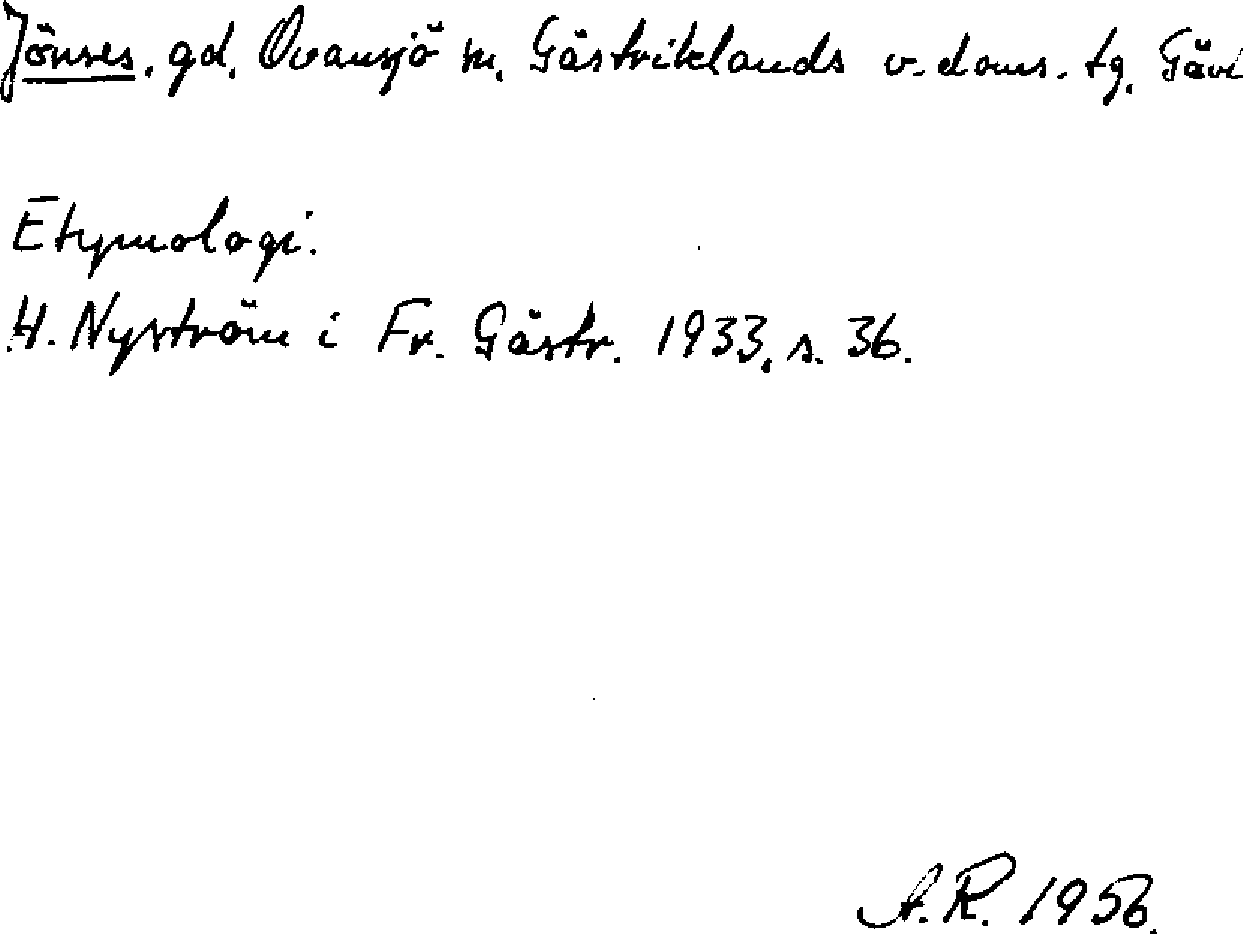 Jönses, gd, Ovansjö sn, Gästriklands v. doms. tg, Gävl
Etymologi.
H. Nyström i Fr. Gästr. 1933, s. 36.
A.R. 1956.